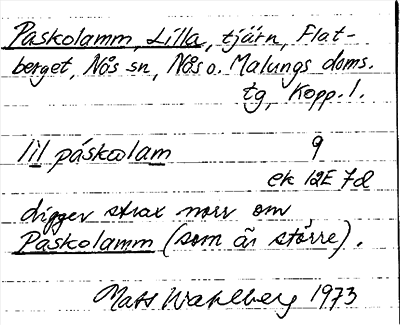 Paskolamm, Lilla, tjärn, Flat-
berget, Nås sn, Nås o. Malungs doms.
tg, Kopp. l.
lìl páskωlam 9
ek 12E 7d
ligger strax norr om
Paskolamm (som är större).
Mats Wahlberg 1973